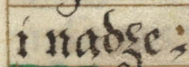 i nadze: